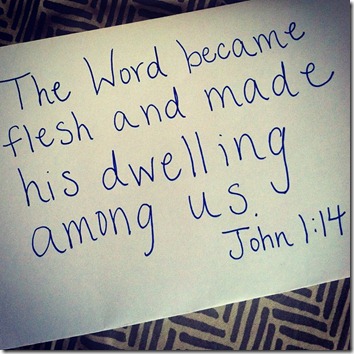 The Word became
flesh and made
his dwelling
among us.
John 1:14